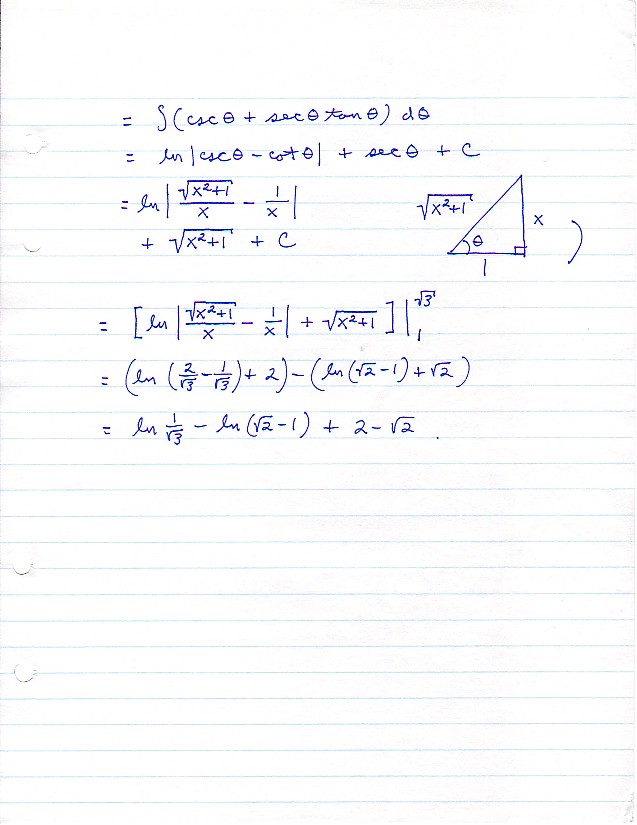 = ∫(cscθ + secθ tanθ) dθ
= ln|cscθ - cotθ| + secθ + C
= ln|√(x²+1)/x - 1/x|
+ √(x²+1) + C
√(x²+1) x θ 1 )
= [ln|√(x²+1)/x - 1/x| + √(x²+1)]|₁^√3
= (ln(2/√3 - 1/√3) + 2) - (ln(√2 - 1) + √2)
= ln 1/√3 - ln(√2 - 1) + 2 - √2.